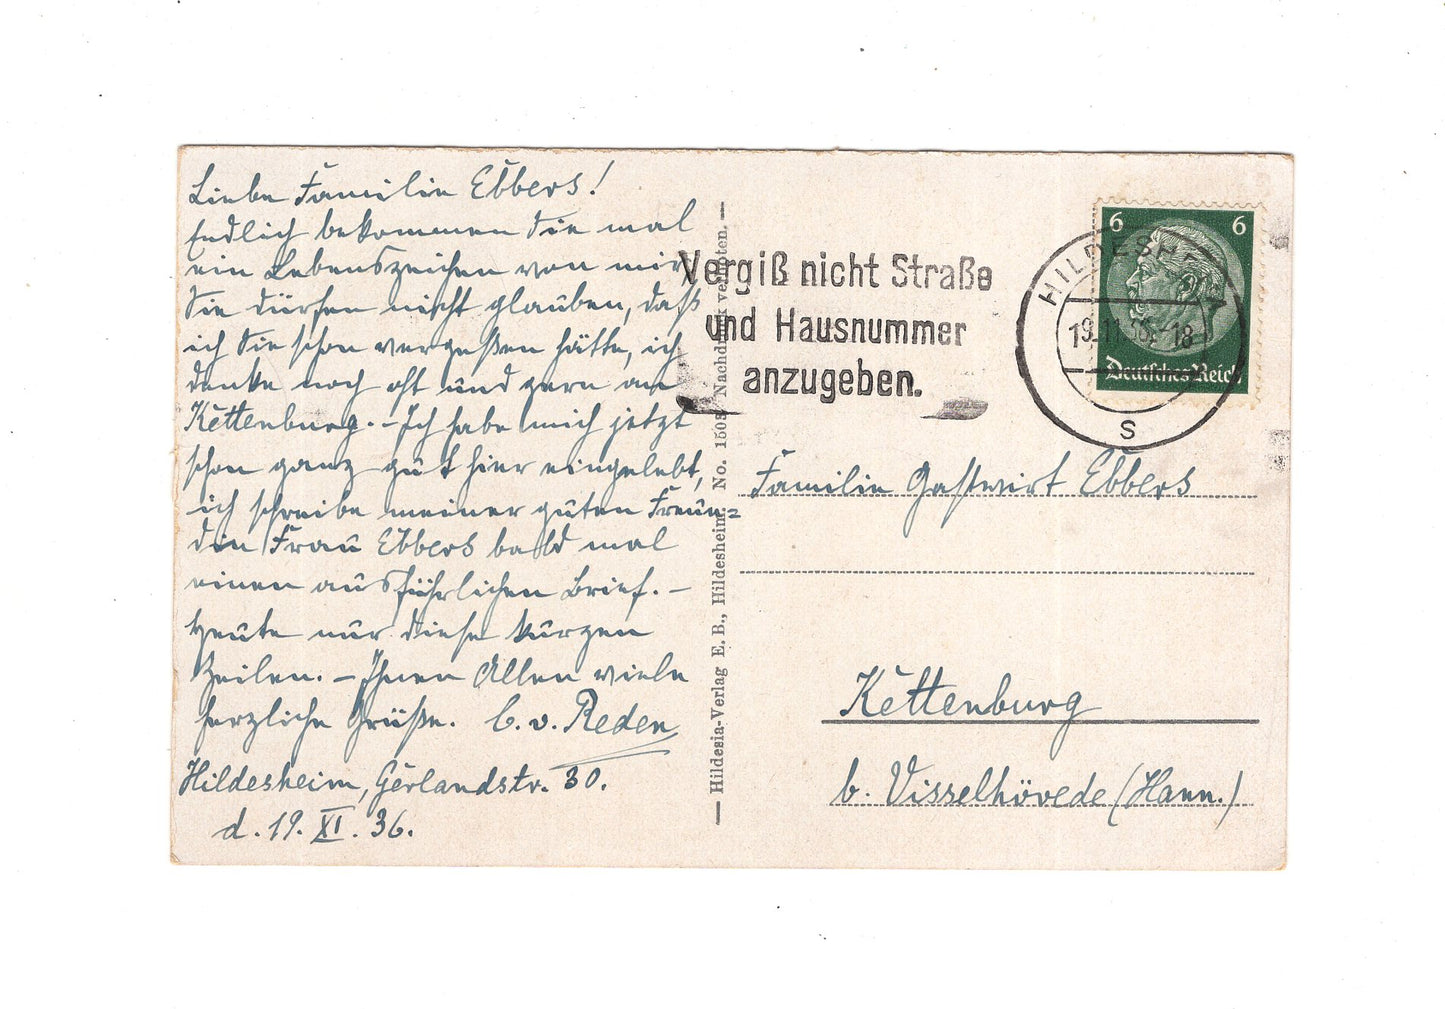 Liebe Familie Ebbers!
Endlich bekommen Sie mal
ein Lebenszeichen von mir.
Sie dürfen nicht glauben, daß
ich Sie schon vergeßen hätte, ich
denke noch oft und gern an
Kettenburg. - Ich habe mich jetzt
schon ganz gut hier eingelebt,
ich schreibe meiner guten Freun=
din Frau Ebbers bald mal
einen ausführlichen Brief. -
Heute nur diese kurzen
Zeilen. - Ihnen Allen viele
herzliche Grüße. C. v. Reden
Hildesheim, Gerlandstr. 30.
d. 19. XI. 36.
— Hildesia-Verlag E. B., Hildesheim. No. 1503. Nachdruck verboten. —
Vergiß nicht Straße
und Hausnummer
anzugeben.
HILDESHEIM
19.11.36.-18
S
6 6
Deutsches Reich
Familie Gastwirt Ebbers
Kettenburg
b. Visselhövede (Hann.)